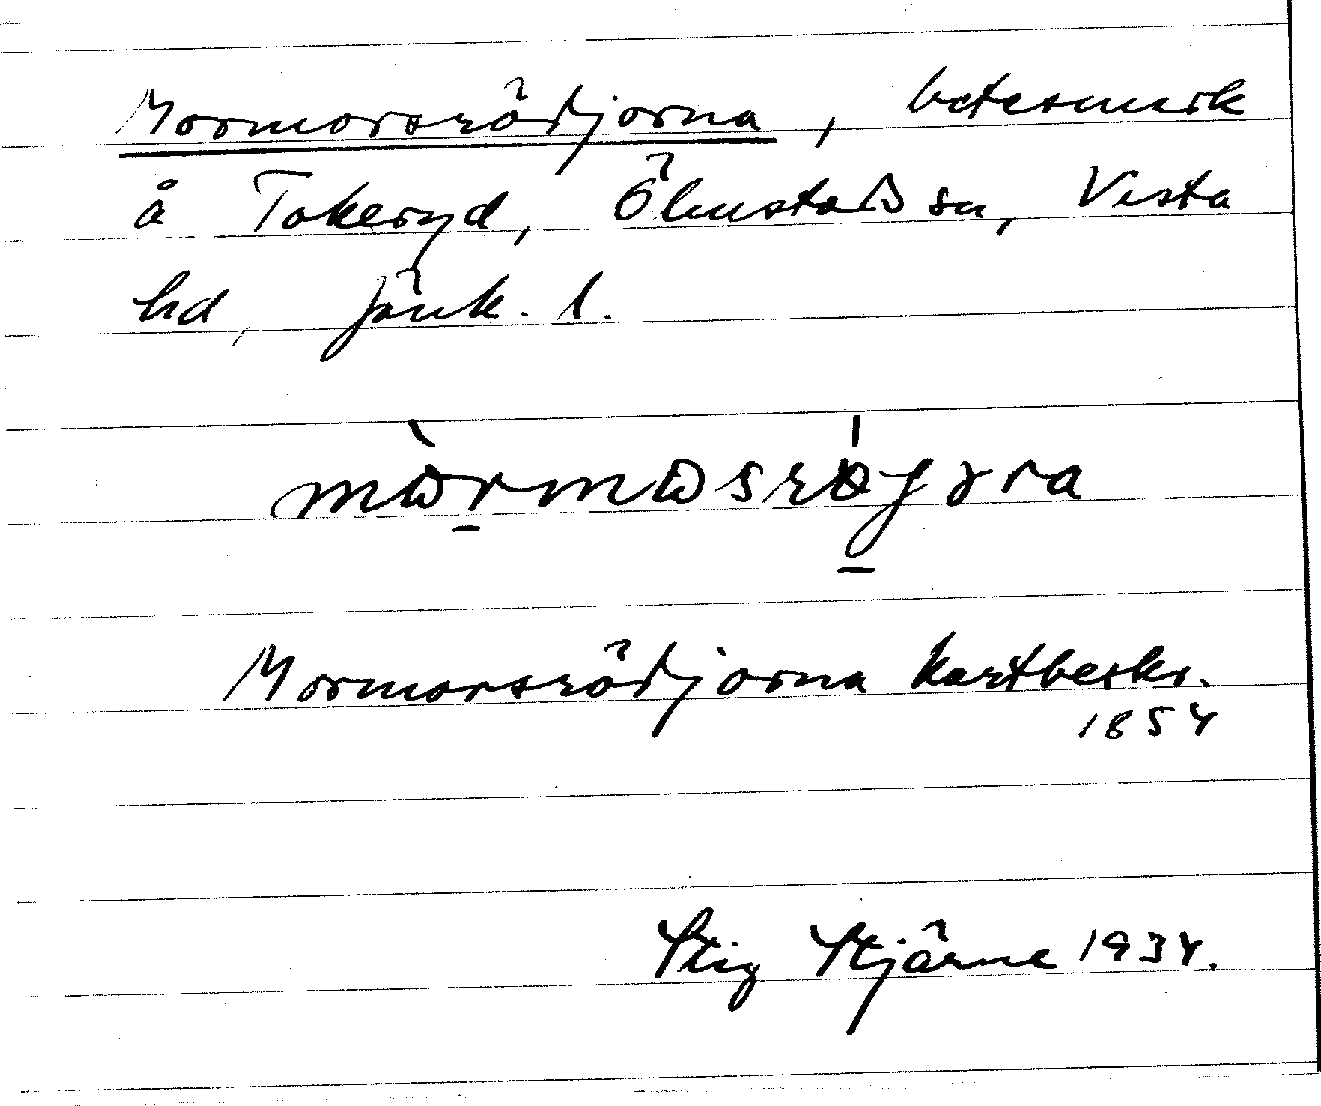 Mormorsrödjorna, betesmark
å Tokeryd, Ölmstad sn, Vista
hd, Jönk. l.
Mormorsrödjorna kartbeskr.
1854
Stig Stjärne 1934.